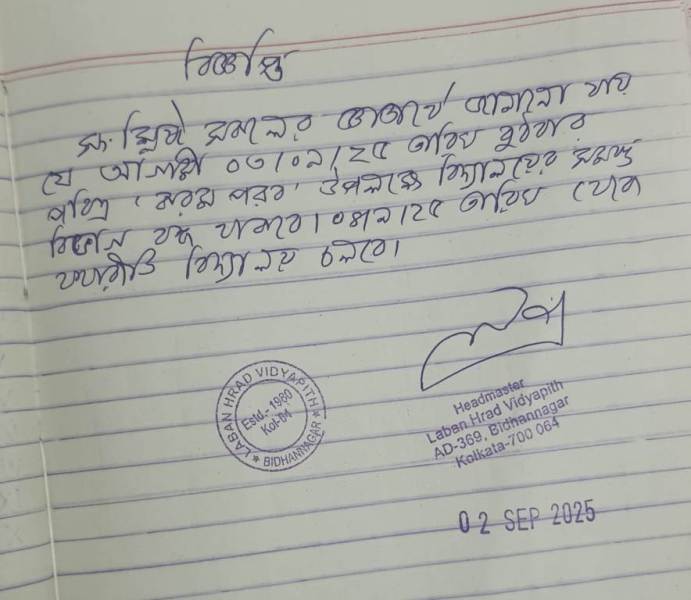 বিজ্ঞপ্তি
সংশ্লিষ্ট সকলের জ্ঞাতার্থে জানানো যায়
যে আগামী ০৩/০৯/২৫ তারিখ বুধবার
পবিত্র 'করম পরব' উপলক্ষে বিদ্যালয়ের সমস্ত
বিভাগ বন্ধ থাকবে। ০৪/৯/২৫ তারিখ থেকে
যথারীতি বিদ্যালয় চলবে।
LABAN HRAD VIDYAPITH
Estd.- 1980
Kol-64
* BIDHANNAGAR *
Headmaster
Laban Hrad Vidyapith
AD-369, Bidhannagar
Kolkata-700 064
02 SEP 2025